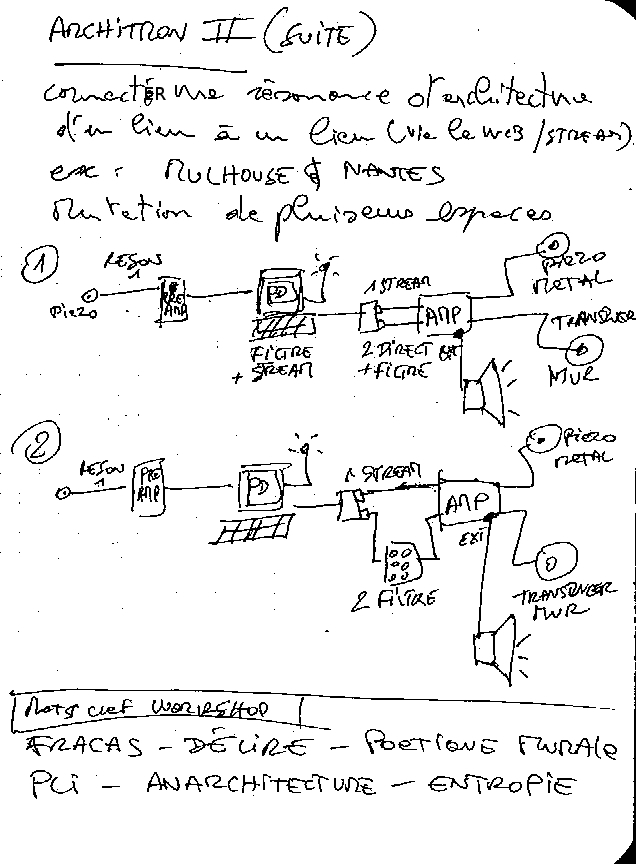 ARCHITRON II (SUITE)
connectER une résonance d'architecture
d'un lieu à un lieu (via le web / STREAM).
ex : MULHOUSE & NANTES
Mutation de plusieurs espaces
1
RESON 1
PIEZO
PRE AMP
PD
FILTRE
+ STREAM
1 STREAM
2 DIRECT
+ FILTRE
AMP
EXT
PIEZO
METAL
TRANSDUCER
MUR
2
RESON 1
PRE AMP
PD
1 STREAM
2 FILTRE
AMP
EXT
PIEZO
METAL
TRANSDUCER
MUR
Mots clef WORKSHOP
FRACAS – DÉLIRE – POETIQUE MURALE
PLI – ANARCHITECTURE – ENTROPIE